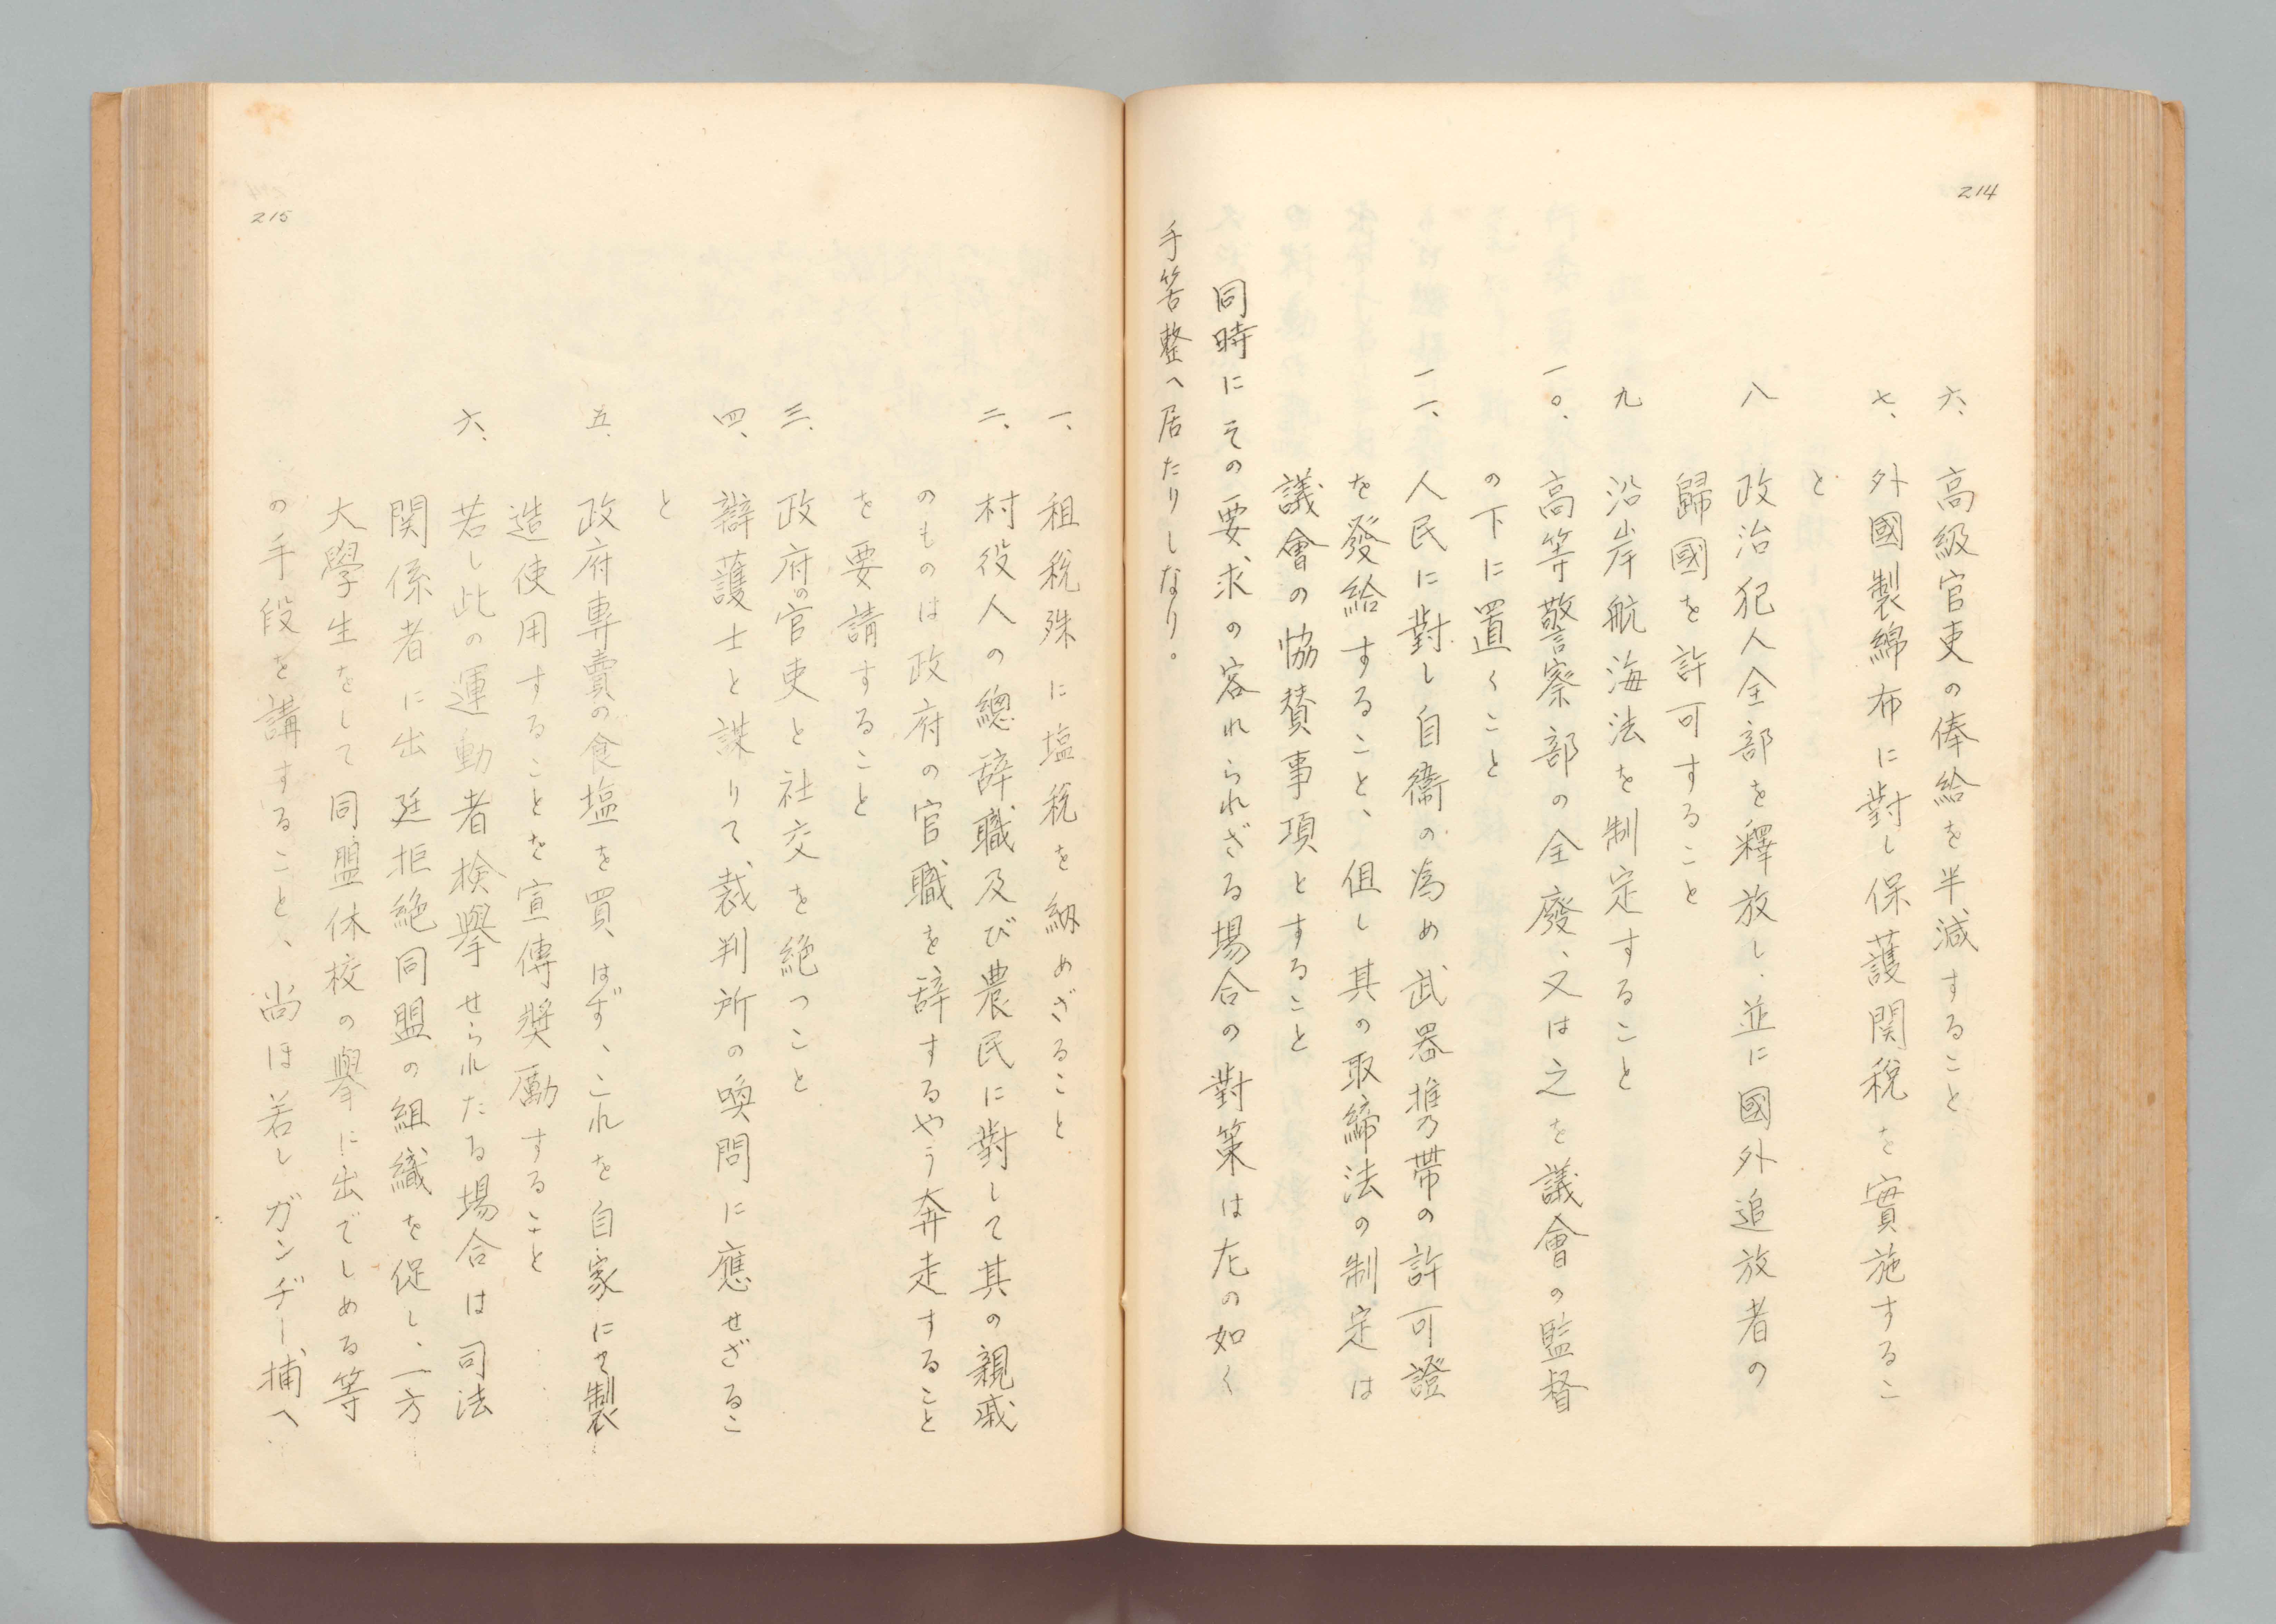 214
六、高級官吏の俸給を半減すること
七、外國製綿布に對し保護関税を實施するこ
と
八 政治犯人全部を釋放し、並に國外追放者の
歸國を許可すること
九 沿岸航海法を制定すること
一〇、高等警察部の全廢、又は之を議會の監督
の下に置くこと
一一、人民に對し自衞の為め武器携帯の許可證
を發給すること、但し其の取締法の制定は
議會の協賛事項とすること
同時にその要求の容れられざる場合の對策は左の如く
手筈整へ居たりしなり。
215
一、租税殊に塩税を納めざること
二、村役人の總辞職及び農民に對して其の親戚
のものは政府の官職を辞するやう奔走すること
を要請すること
三、政府の官吏と社交を絶つこと
四、辯護士と謀りて裁判所の喚問に應せざるこ
と
五、政府専賣の食塩を買はず、これを自家にて製
造使用することを宣傳奬勵すること
六、若し此の運動者検擧せられたる場合は司法
関係者に出廷拒絶同盟の組織を促し、一方
大學生をして同盟休校の擧に出でしめる等
の手段を講すること、尚ほ若しガンヂー捕へ